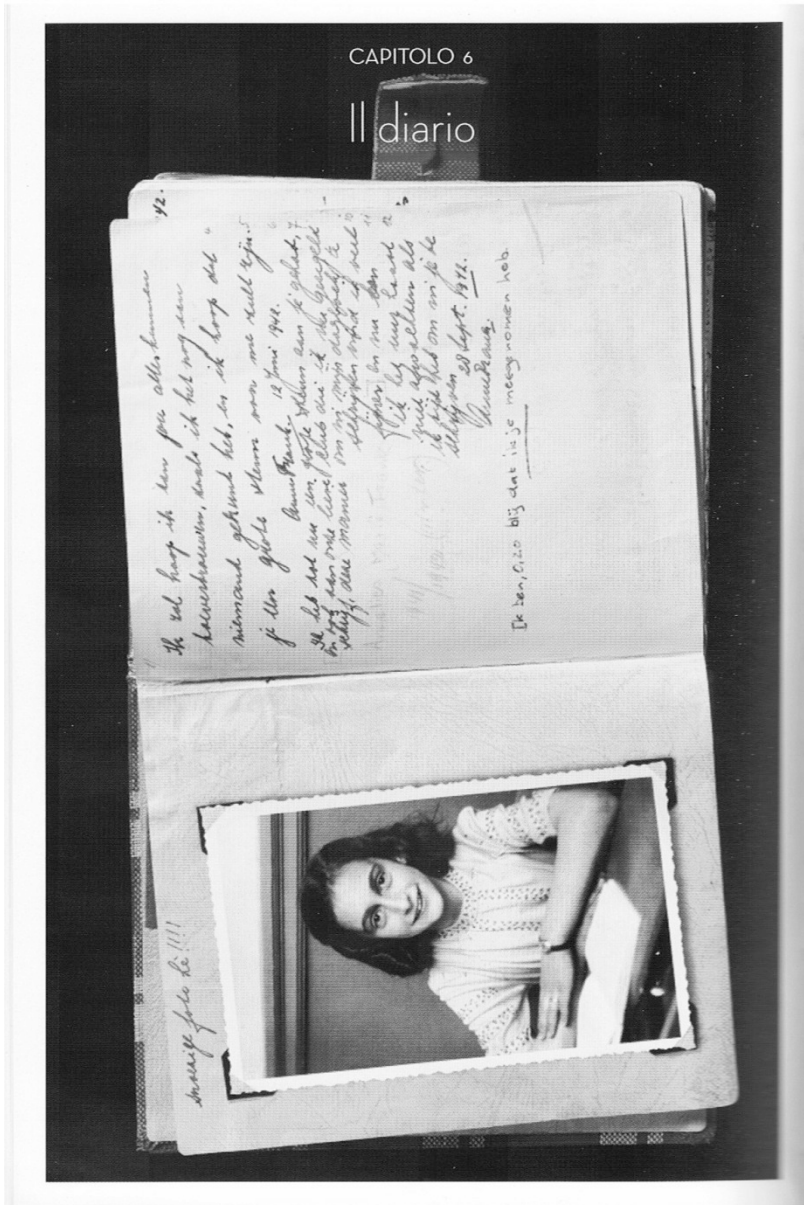 CAPITOLO 6
Il diario
snoezige foto hè!!!!
'42.
Ik zal hoop ik aan jou alles kunnen
toevertrouwen, zoals ik het nog aan
niemand gekund heb, en ik hoop dat 4
je een grote steun voor me zult zijn. 5
Anne Frank. 12 Juni 1942. 6
Ik heb tot nu een grote steun aan je gehad, 7
en ook aan onze lieve club die ik nu geregeld
schrijf, deze manier om in mijn dagboek te
schrijven vind ik veel 10
fijner en nu kan 11
ik het uur haast 12
niet afwachten als
ik tijd heb om in je te
schrijven
28 Sept. 1942.
Anne Frank.
Ik ben, O, zo blij dat ik je meegenomen heb.